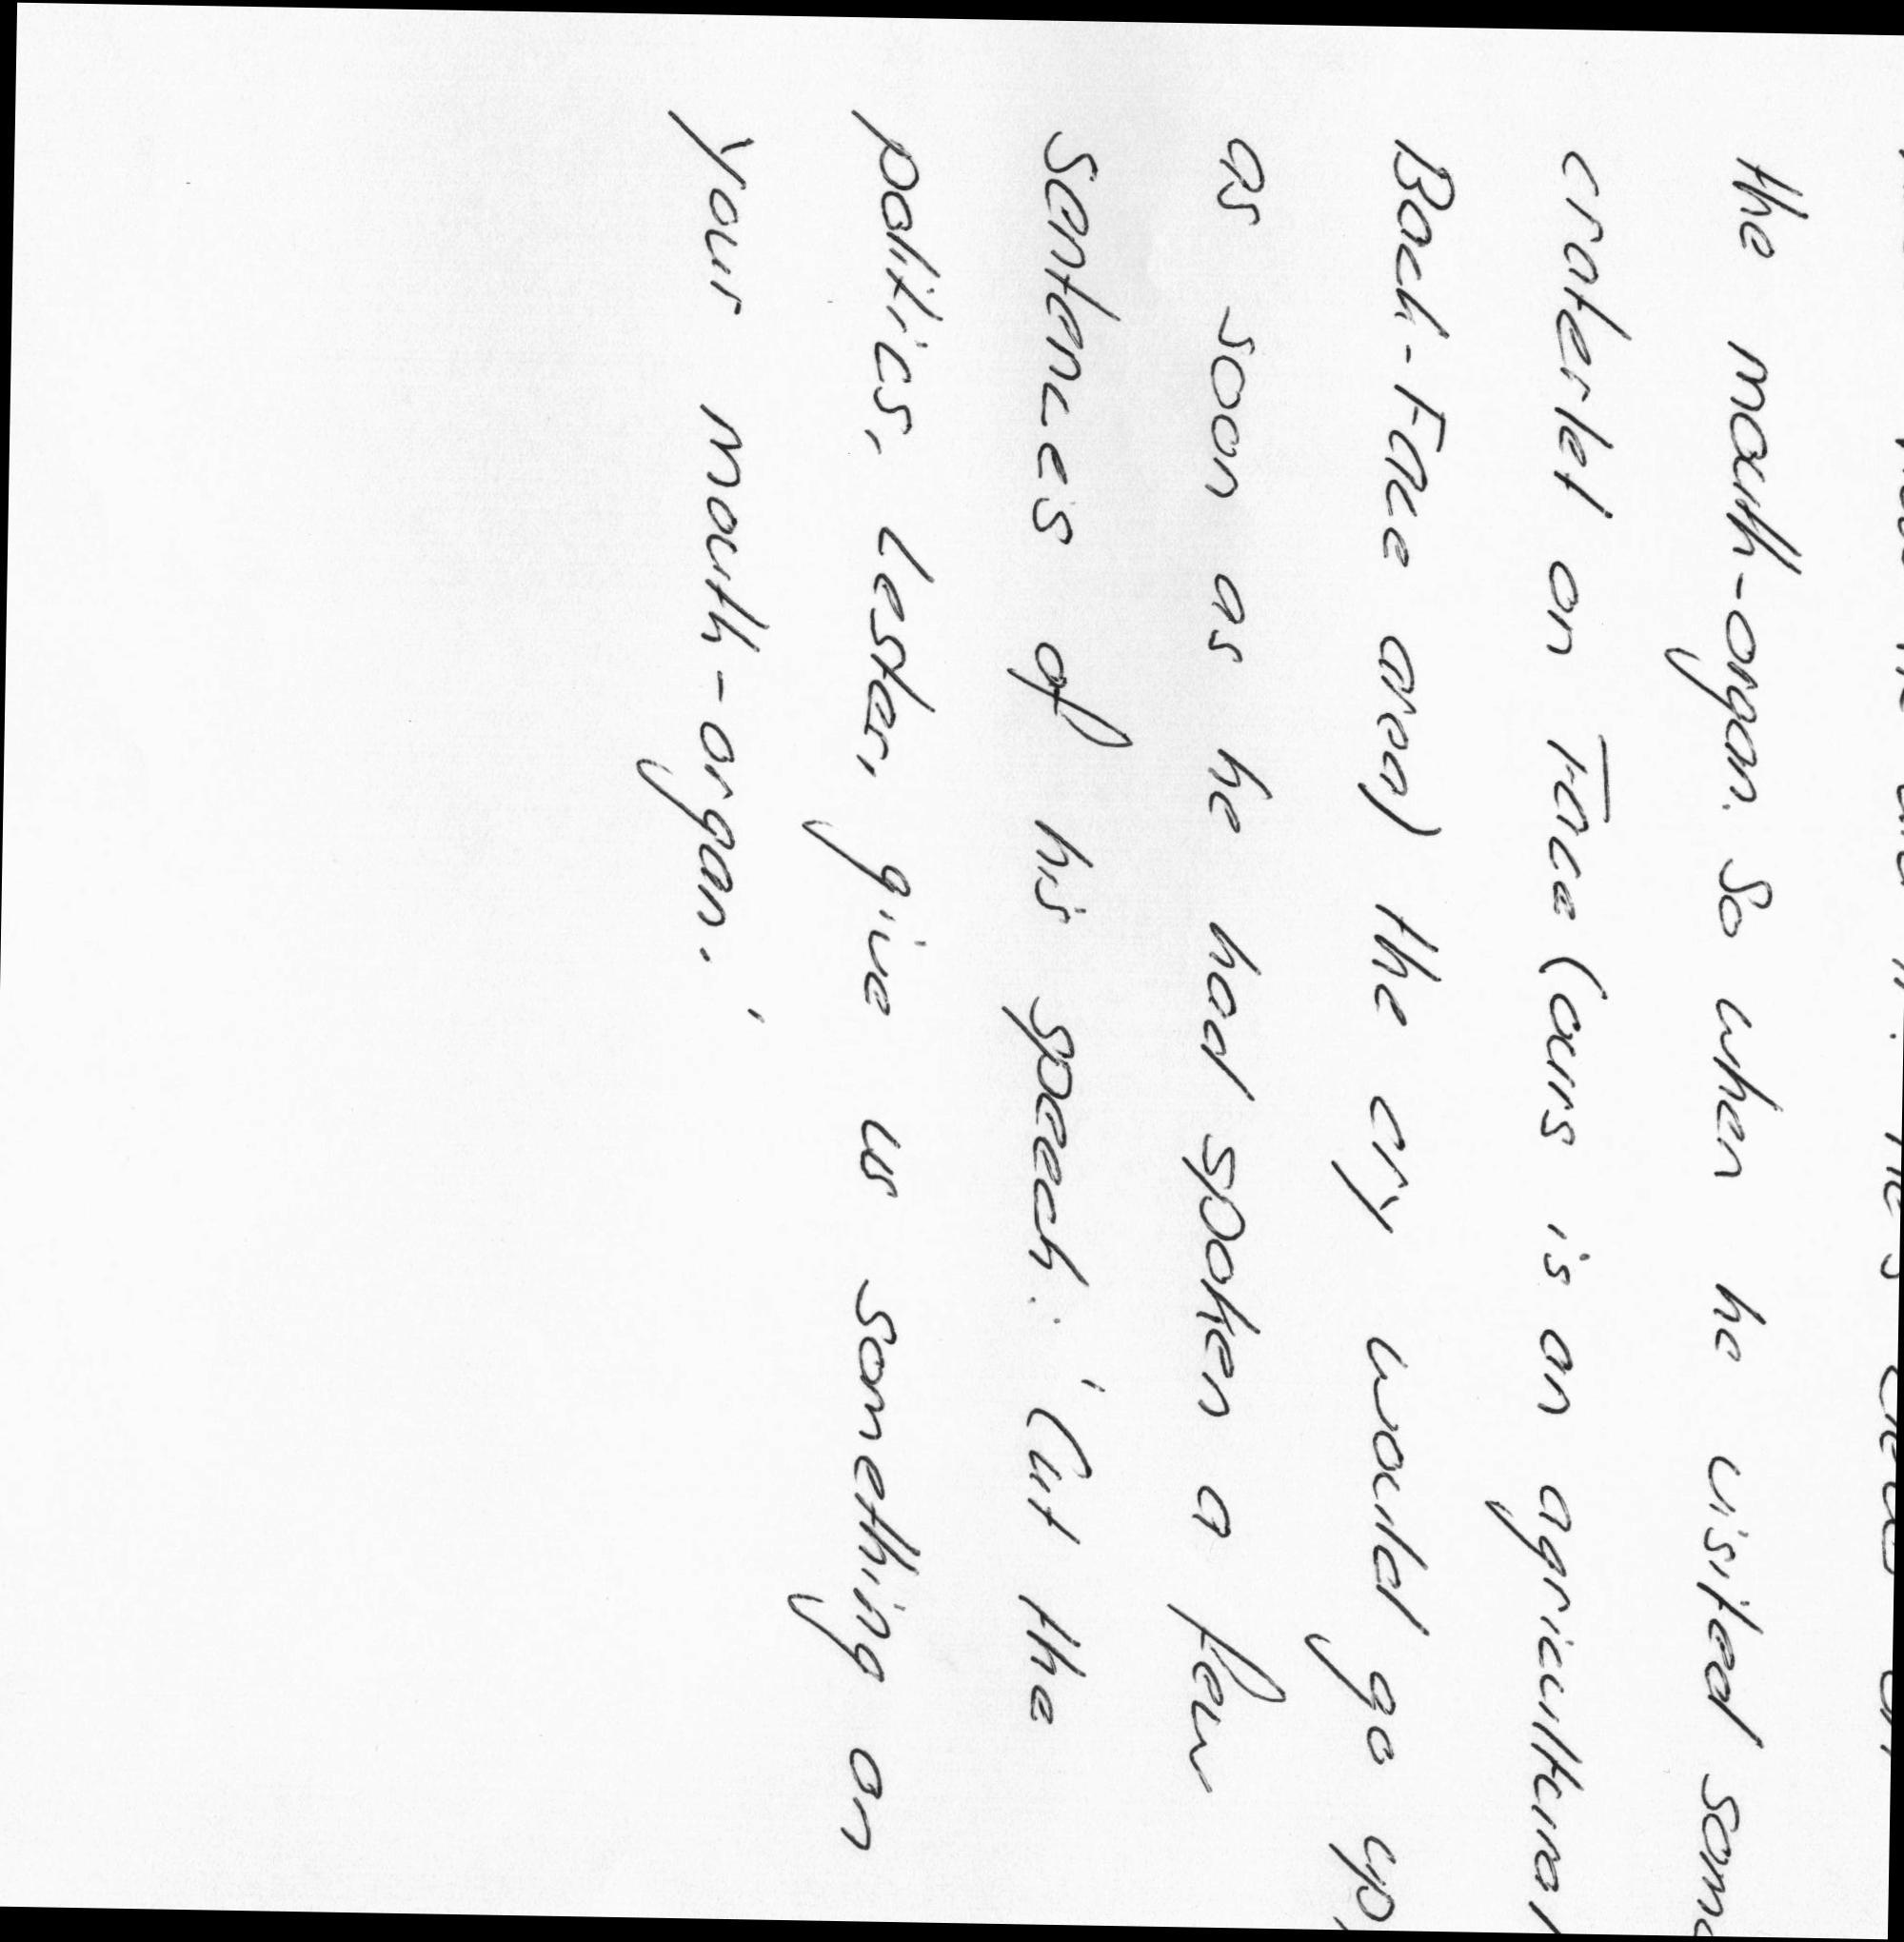 the mouth-organ. So when he visited some
craterlet on Face (ours is an agricultural
Back-Face area) the cry would go up,
as soon as he had spoken a few
sentences of his speech: 'Cut the
politics, Lester, give us something on
your mouth-organ.'